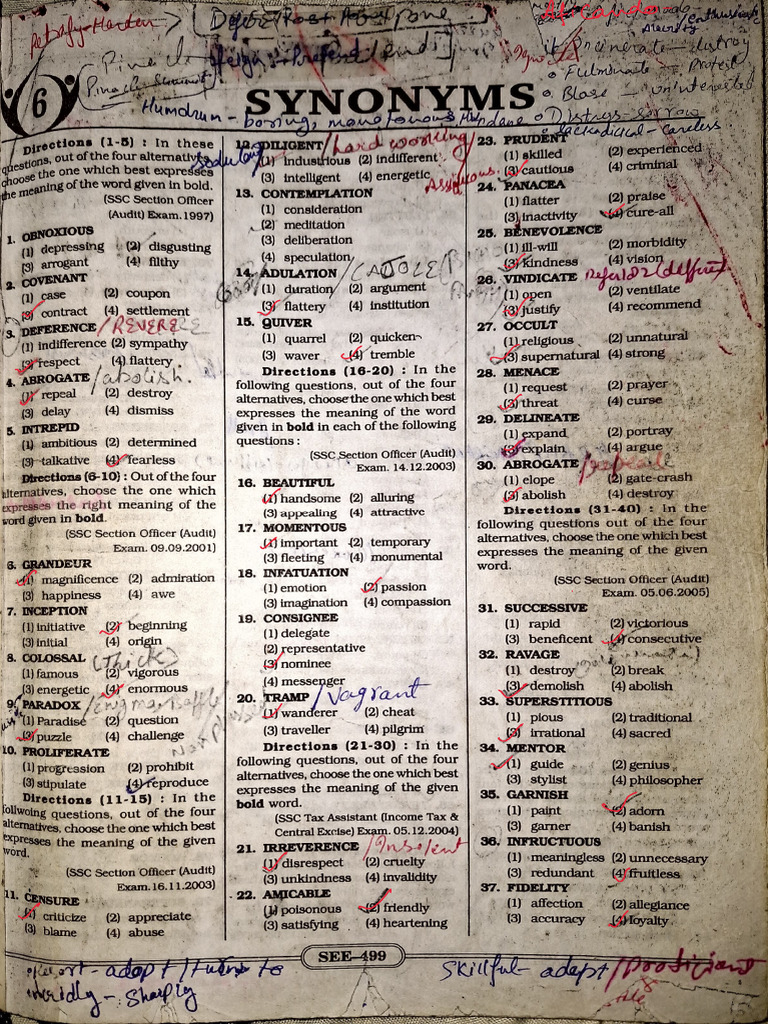 Petrify-Harden
enthusiasm
Alacrity
Pinach
destroy
Fulminate - Protest
Blase - uninterested
Humdrum - boring, monotonous, Mundane
Distress - sorrow
lackadaisical - careless
6
SYNONYMS
Directions (1-5) : In these
questions, out of the four alternatives,
choose the one which best expresses
the meaning of the word given in bold.
(SSC Section Officer
(Audit) Exam.1997)
1. OBNOXIOUS
(1) depressing (2) disgusting
(3) arrogant (4) filthy
2. COVENANT
(1) case (2) coupon
(3) contract (4) settlement
3. DEFERENCE /REVERE
(1) indifference (2) sympathy
(3) respect (4) flattery
4. ABROGATE /abolish.
(1) repeal (2) destroy
(3) delay (4) dismiss
5. INTREPID
(1) ambitious (2) determined
(3) talkative (4) fearless
Directions (6-10) : Out of the four
alternatives, choose the one which
expresses the right meaning of the
word given in bold.
(SSC Section Officer (Audit)
Exam. 09.09.2001)
6. GRANDEUR
(1) magnificence (2) admiration
(3) happiness (4) awe
7. INCEPTION
(1) initiative (2) beginning
(3) initial (4) origin
8. COLOSSAL (Thick)
(1) famous (2) vigorous
(3) energetic (4) enormous
9. PARADOX /enigma
(1) Paradise (2) question
(3) puzzle (4) challenge
10. PROLIFERATE
(1) progression (2) prohibit
(3) stipulate (4) reproduce
Directions (11-15) : In the
follwoing questions, out of the four
alternatives, choose the one which best
expresses the meaning of the given
word.
(SSC Section Officer (Audit)
Exam.16.11.2003)
11. CENSURE
(1) criticize (2) appreciate
(3) blame (4) abuse
12. DILIGENT /hard working/
(1) industrious (2) indifferent
(3) intelligent (4) energetic
13. CONTEMPLATION
(1) consideration
(2) meditation
(3) deliberation
(4) speculation
14. ADULATION /CAJOLE
(1) duration (2) argument
(3) flattery (4) institution
15. QUIVER
(1) quarrel (2) quicken
(3) waver (4) tremble
Directions (16-20) : In the
following questions, out of the four
alternatives, choose the one which best
expresses the meaning of the word
given in bold in each of the following
questions :
(SSC Section Officer (Audit)
Exam. 14.12.2003)
16. BEAUTIFUL
(1) handsome (2) alluring
(3) appealing (4) attractive
17. MOMENTOUS
(1) important (2) temporary
(3) fleeting (4) monumental
18. INFATUATION
(1) emotion (2) passion
(3) imagination (4) compassion
19. CONSIGNEE
(1) delegate
(2) representative
(3) nominee
(4) messenger
20. TRAMP /vagrant
(1) wanderer (2) cheat
(3) traveller (4) pilgrim
Directions (21-30) : In the
following questions, out of the four
alternatives, choose the one which best
expresses the meaning of the given
bold word.
(SSC Tax Assistant (Income Tax &
Central Excise) Exam. 05.12.2004)
21. IRREVERENCE /Insolent
(1) disrespect (2) cruelty
(3) unkindness (4) invalidity
22. AMICABLE
(1) poisonous (2) friendly
(3) satisfying (4) heartening
23. PRUDENT
(1) skilled (2) experienced
(3) cautious (4) criminal
24. PANACEA
(1) flatter (2) praise
(3) inactivity (4) cure-all
25. BENEVOLENCE
(1) ill-will (2) morbidity
(3) kindness (4) vision
26. VINDICATE
(1) open (2) ventilate
(3) justify (4) recommend
27. OCCULT
(1) religious (2) unnatural
(3) supernatural (4) strong
28. MENACE
(1) request (2) prayer
(3) threat (4) curse
29. DELINEATE
(1) expand (2) portray
(3) explain (4) argue
30. ABROGATE
(1) elope (2) gate-crash
(3) abolish (4) destroy
Directions (31-40) : In the
following questions out of the four
alternatives, choose the one which best
expresses the meaning of the given
word.
(SSC Section Officer (Audit)
Exam. 05.06.2005)
31. SUCCESSIVE
(1) rapid (2) victorious
(3) beneficent (4) consecutive
32. RAVAGE
(1) destroy (2) break
(3) demolish (4) abolish
33. SUPERSTITIOUS
(1) pious (2) traditional
(3) irrational (4) sacred
34. MENTOR
(1) guide (2) genius
(3) stylist (4) philosopher
35. GARNISH
(1) paint (2) adorn
(3) garner (4) banish
36. INFRUCTUOUS
(1) meaningless (2) unnecessary
(3) redundant (4) fruitless
37. FIDELITY
(1) affection (2) allegiance
(3) accuracy (4) loyalty
SEE-499
adopt/turn to
Sharply
Skillful - adept/Proficient